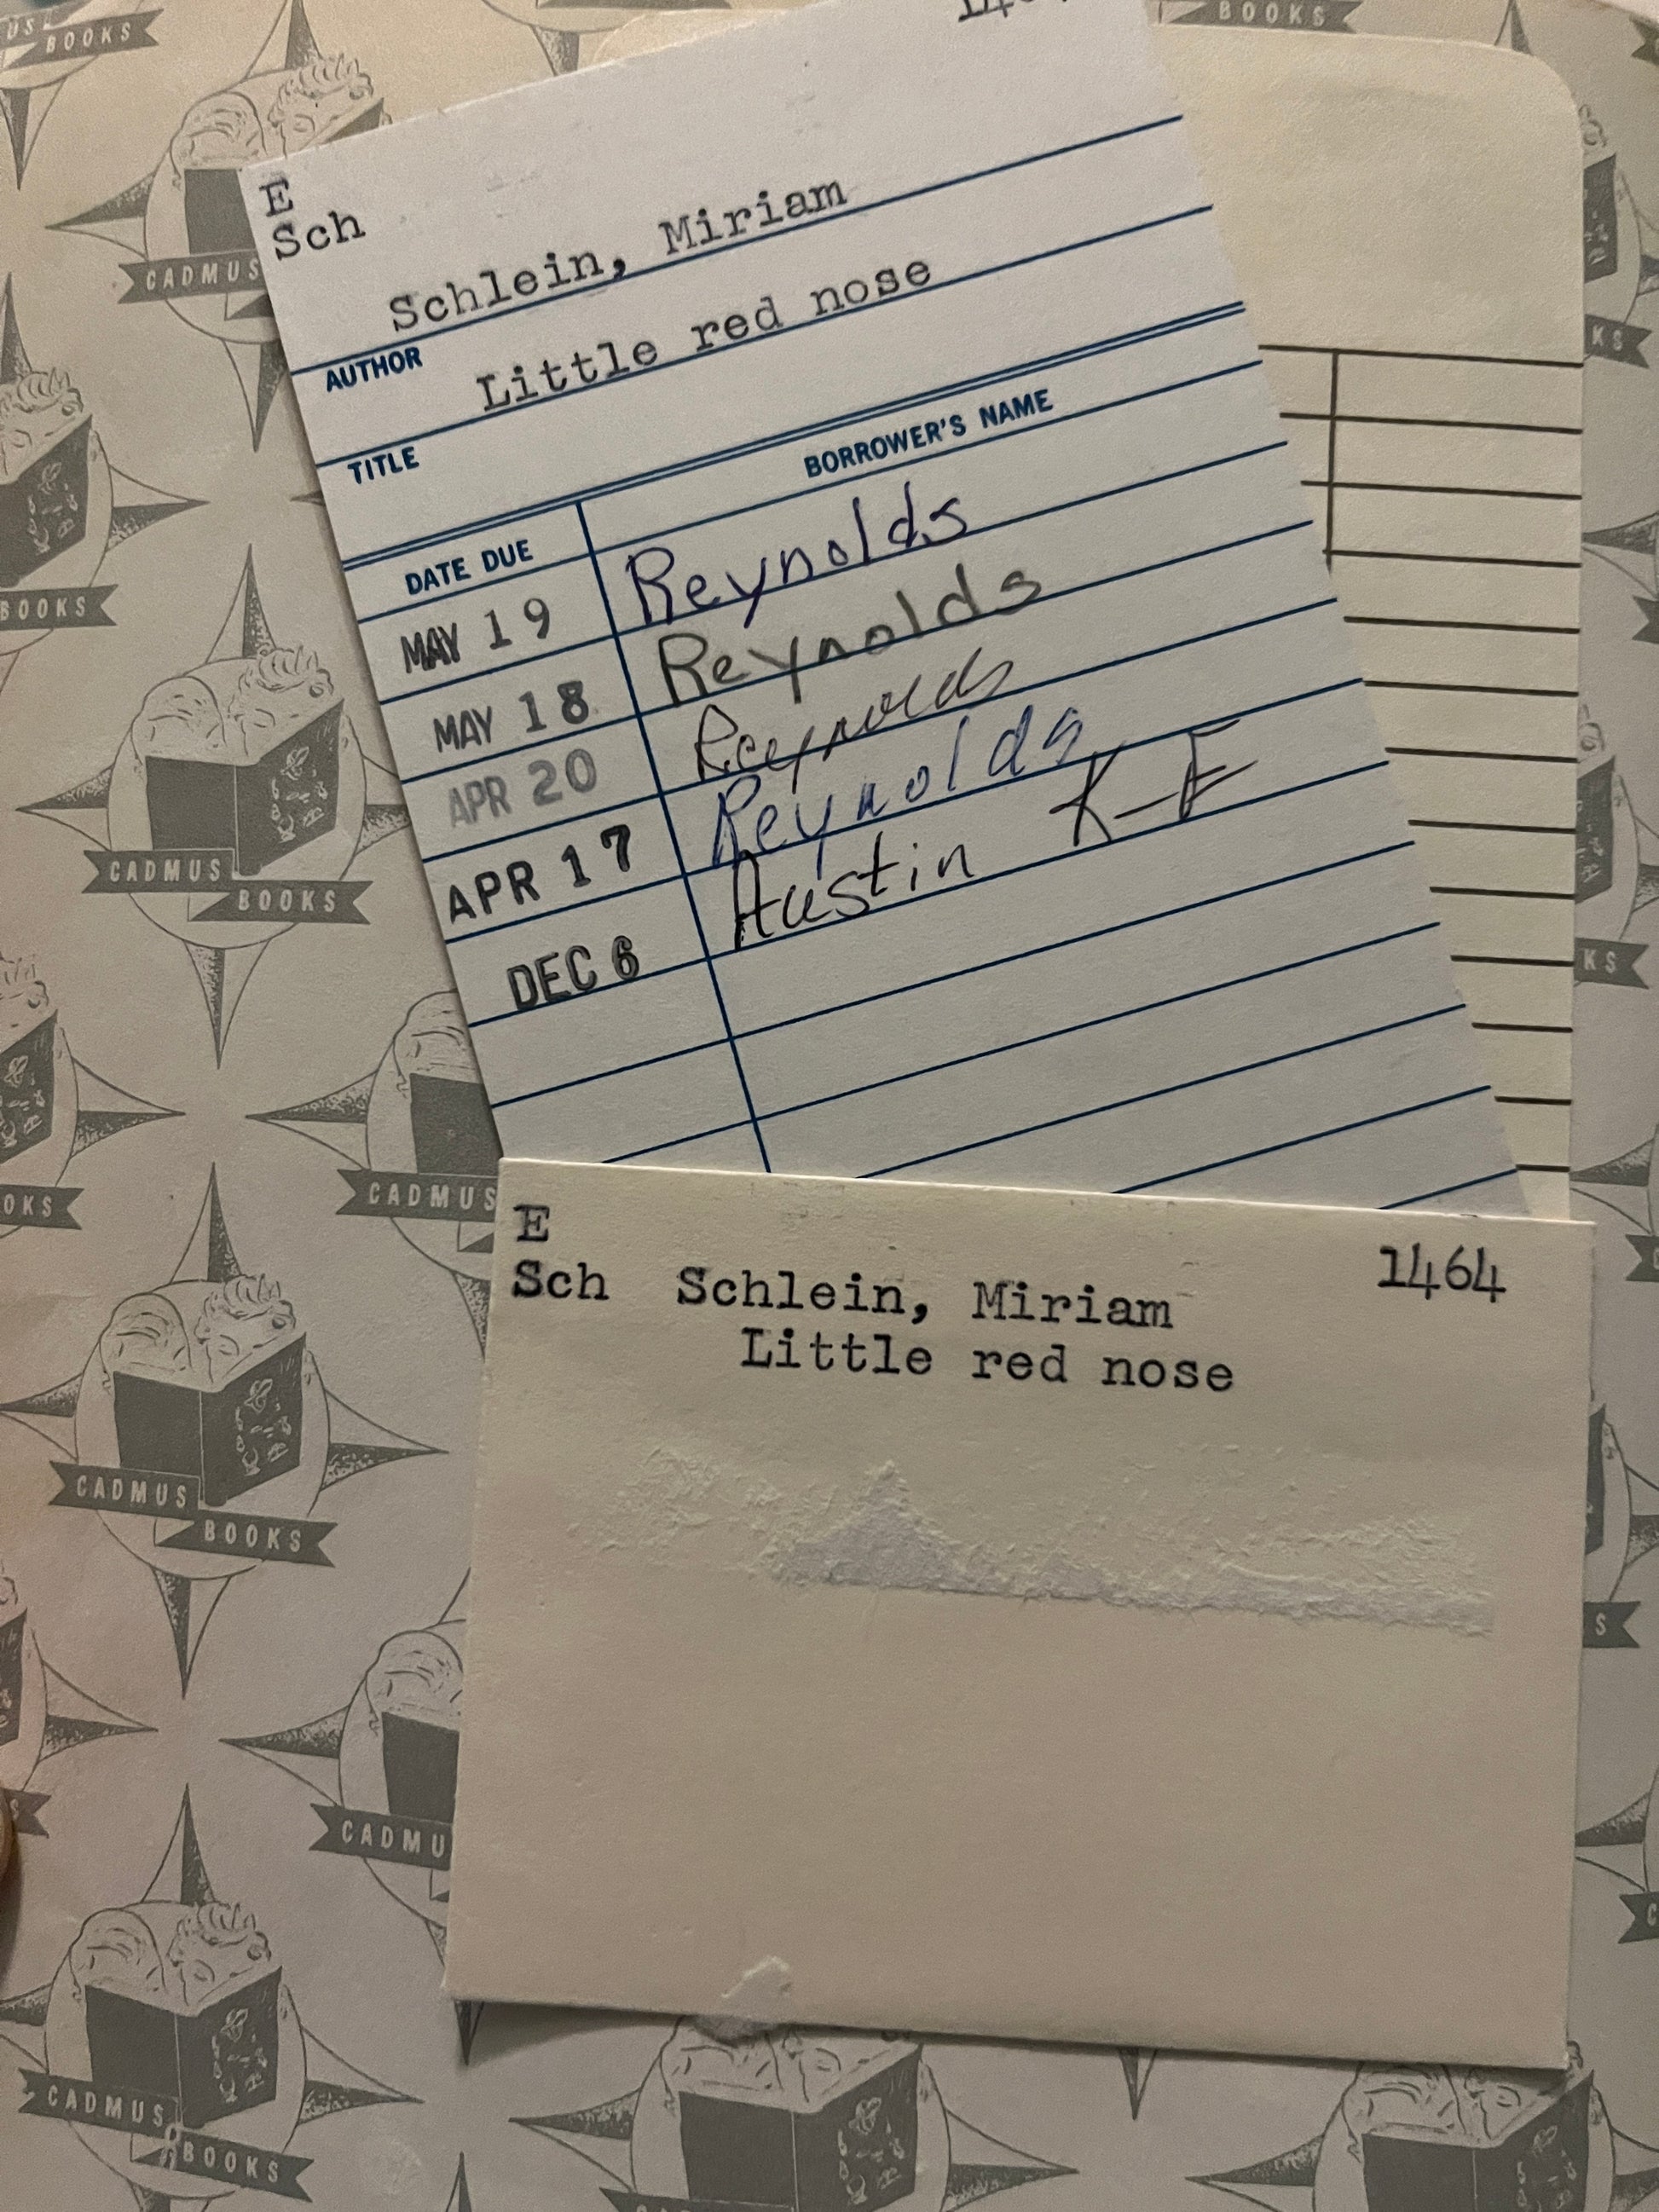 E
Sch
Schlein, Miriam
AUTHOR
Little red nose
TITLE
DATE DUE BORROWER'S NAME
MAY 19 Reynolds
MAY 18 Reynolds
APR 20 Reynolds
APR 17 Reynolds
DEC 6 Austin K-F
E
Sch Schlein, Miriam 1464
Little red nose
BOOKS
BOOKS
CADMUS
BOOKS
CADMUS
BOOKS
CADMUS
CADMUS
BOOKS
CADMUS
BOOKS